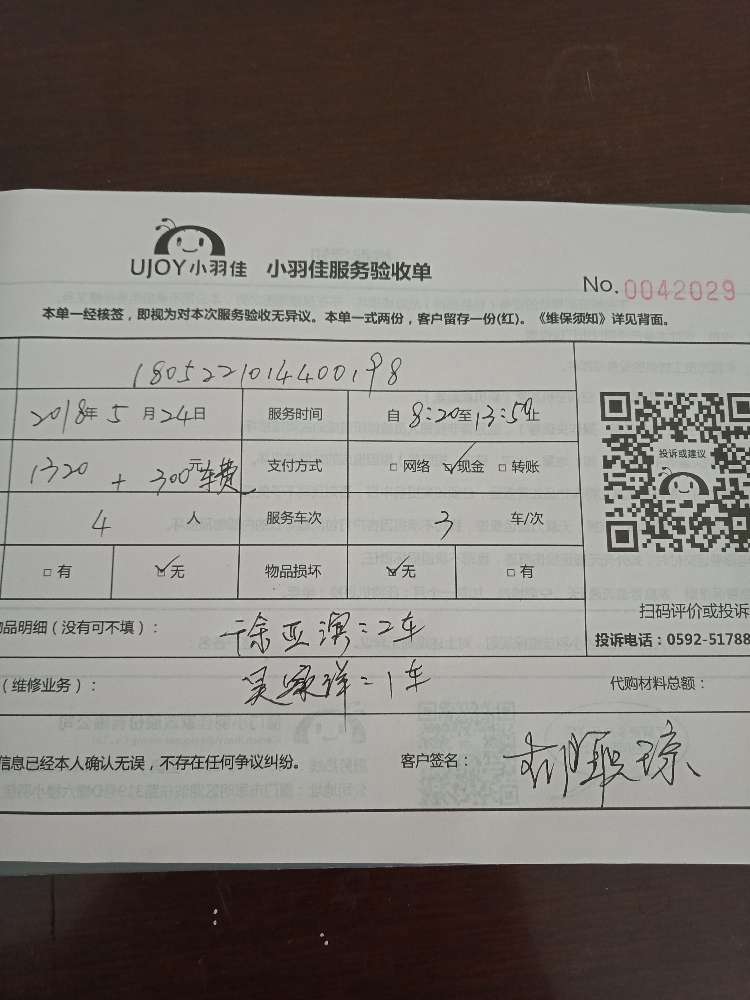 UJOY小羽佳 小羽佳服务验收单
No. 0042029
本单一经核签，即视为对本次服务验收无异议。本单一式两份，客户留存一份(红)。《维保须知》详见背面。
2018年 5 月 24 日 服务时间 自 8:20至13:50止
1320 + 300元车费 支付方式 □ 网络 ☑现金 □ 转账
投诉或建议
4 人 服务车次 3 车/次
□ 有 ☑无 物品损坏 ☑无 □ 有
扫码评价或投诉
品明细（没有可不填）： 亚滨=2车
投诉电话：0592-51788
（维修业务）： 吴家祥=1车 代购材料总额：
信息已经本人确认无误，不存在任何争议纠纷。 客户签名：